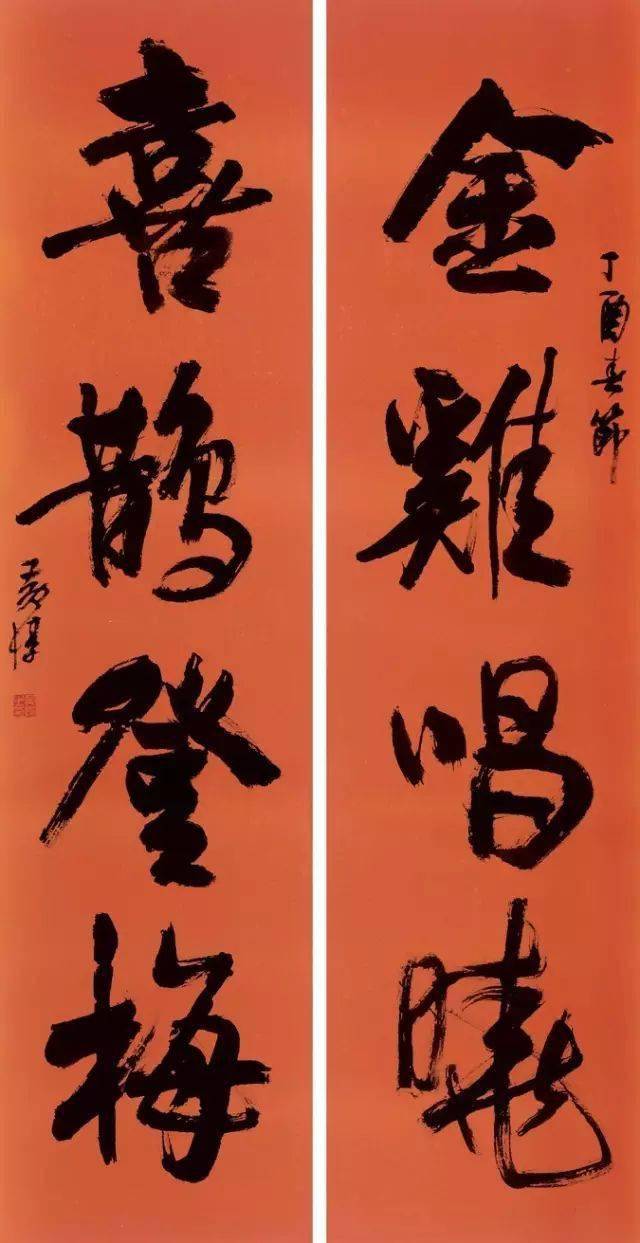 丁酉春節
金雞唱曉
喜鵲登梅
黄惇